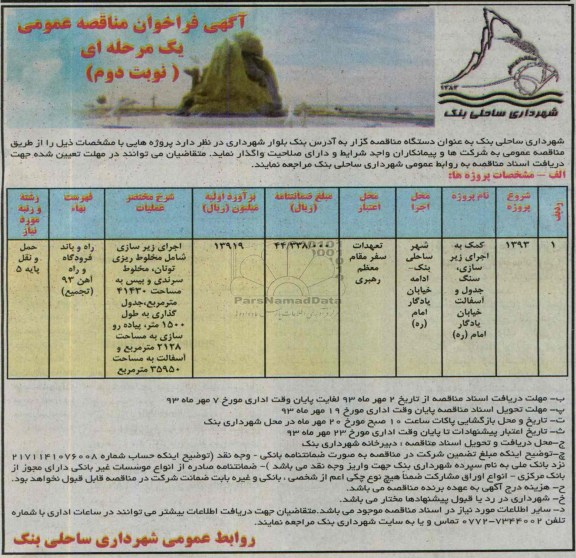 آگهی فراخوان مناقصه عمومی
یک مرحله ای
( نوبت دوم)
۱۳۸۳
شهرداری ساحلی بنک
شهرداری ساحلی بنک به عنوان دستگاه مناقصه گزار به آدرس بنک بلوار شهرداری در نظر دارد پروژه هایی با مشخصات ذیل را از طریق
مناقصه عمومی به شرکت ها و پیمانکاران واجد شرایط و دارای صلاحیت واگذار نماید. متقاضیان می توانند در مهلت تعیین شده جهت
دریافت اسناد مناقصه به روابط عمومی شهرداری ساحلی بنک مراجعه نمایند.
الف – مشخصات پروژه ها:
ردیف
شروع پروژه
نام پروژه
محل اجرا
محل اعتبار
مبلغ ضمانتنامه (ریال)
برآورد اولیه میلیون (ریال)
شرح مختصر عملیات
فهرست بهاء
رشته و رتبه مورد نیاز
۱
۱۳۹۳
کمک به اجرای زیر سازی، سنگ جدول و اسفالت خیابان یادگار امام (ره)
شهر ساحلی بنک- ادامه خیابان یادگار امام (ره)
تعهدات سفر مقام معظم رهبری
۴۴/۳۳۸/۰۰۰
۱۳۹۱۹
اجرای زیر سازی
شامل مخلوط ریزی
تونان، مخلوط
سرندی و بیس به
مساحت ۴۱۴۳۰
مترمربع،جدول
گذاری به طول
۱۵۰۰ متر، پیاده رو
سازی به مساحت
۲۱۲۸ مترمربع و
آسفالت به مساحت
۳۵۹۵۰ مترمربع
راه و باند فرودگاه و راه آهن ۹۳ (تجمیع)
حمل و نقل پایه ۵
ParsNamadData
ب- مهلت دریافت اسناد مناقصه از تاریخ ۲ مهر ماه ۹۳ لغایت پایان وقت اداری مورخ ۷ مهر ماه ۹۳
پ- مهلت تحویل اسناد مناقصه پایان وقت اداری مورخ ۱۹ مهر ماه ۹۳
ت- تاریخ و محل بازگشایی پاکات ساعت ۱۰ صبح مورخ ۲۰ مهر ماه در محل شهرداری بنک
ث- تاریخ اعتبار پیشنهادات تا پایان وقت اداری مورخ ۲۳ مهر ماه ۹۳
ج-محل دریافت و تحویل اسناد مناقصه : دبیرخانه شهرداری بنک
چ-توضیح اینکه مبلغ تضمین شرکت در مناقصه به صورت ضمانتنامه بانکی - وجه نقد (توضیح اینکه حساب شماره ۲۱۷۱۱۴۱۰۷۶۰۰۸
نزد بانک ملی به نام سپرده شهرداری بنک جهت واریز وجه نقد می باشد )- ضمانتنامه صادره از انواع موسسات غیر بانکی دارای مجوز از
بانک مرکزی - انواع اوراق مشارکت ضمناً هیچ نوع چکی اعم از شخصی ، بانکی و غیره بابت ضمانت شرکت در مناقصه قابل قبول نخواهد بود.
ح- هزینه درج آگهی به عهده برنده مناقصه می باشد.
خ- شهرداری در رد یا قبول پیشنهادها مختار می باشد.
د- سایر اطلاعات مورد نیاز در اسناد مناقصه موجود می باشد.متقاضیان جهت دریافت اطلاعات بیشتر می توانند در ساعات اداری با شماره
تلفن ۷۳۴۴۰۰۲-۰۷۷۲ تماس و یا به سایت شهرداری بنک مراجعه نمایند.
روابط عمومی شهرداری ساحلی بنک